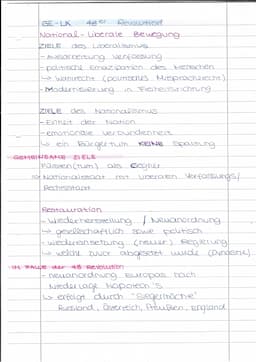 GE-LK 48er Revolution
National-liberale Bewegung
ZIELE des Liberalismus
- Ausarbeitung Verfassung
- politische Emanzipation des Menschen
↳ Wahlrecht (politisches Mitspracherecht)
- Modernisierung in Freiheitsrichtung
ZIELE des Nationalismus
- Einheit der Nation
- emotionale Verbundenheit
↳ ein Bürgertum KEINE Spaltung
GEMEINSAME ZIELE
Fürsten(tum) als Gegner
Nationalstaat mit liberalen Verfassungs/
Rechtsstaat
Restauration
- Wiederherstellung / Neuanordnung
↳ gesellschaftlich sowie politisch
- Wiedereinsetzung (neuer) Regierung
↳ welche zuvor abgesetzt wurde (Dynastie)
IM FALLE der 48 Revolution
- Neuanordnung Europas nach
Niederlage Napoleon's
↳ erfolgt durch "Siegermächte"
Russland, Österreich, Preußen, England